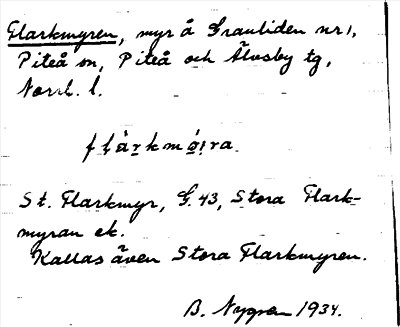 Flarkmyren, myr å Granliden nr 1,
Piteå sn, Piteå och Älvsby tg,
Norrb. l.
flärkmøịra
St. Flarkmyr, G. 43, Stora Flark-
myran ek.
Kallas även Stora Flarkmyren.
B. Nygren 1934.